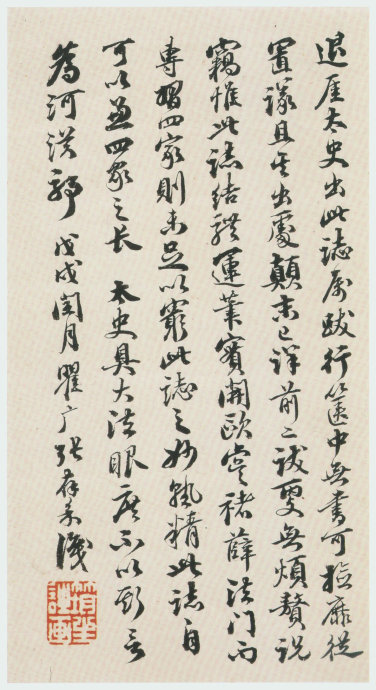 退厓太史出此誌属跋行篋中無書可捡靡從
置議且其出處顛末已詳前二跋更無煩贅説
竊惟此誌結體運筆實開歐虞褚薛法门而
専習四家則未足以窮此誌之妙孰精此誌自
可以兼四家之长 太史具大法眼庶不以斯言
為河漢耶 戊戌閏月瞿广张識